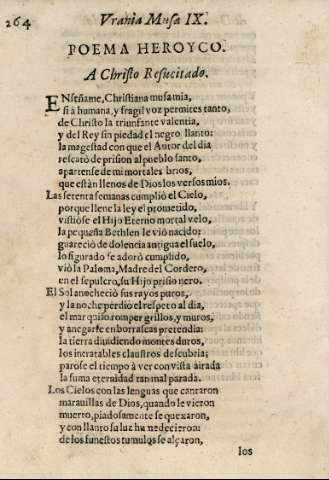 264
Vrania Musa IX.
POEMA HEROYCO.
A Christo Resucitado.
ENseñame, Christiana musa mia,
si à humana, y fragil voz permites tanto,
de Christo la triunfante valentia,
y del Rey sin piedad el negro llanto:
la magestad con que el Autor del dia
rescatò de prision al pueblo santo,
apartense de mi mortales brios,
que estàn llenos de Dios los versos mios.
Las setenta semanas cumpliò el Cielo,
porque llene la ley el prometido,
vistiose el Hijo Eterno mortal velo,
la pequeña Bethlen le viò nacido:
guareciò de dolencia antigua el suelo,
lo figurado se adorò cumplido,
viò la Paloma, Madre del Cordero,
en el sepulcro, su Hijo prisionero.
El Sol anochecìò sus rayos puros,
y la noche perdiò el respeto al dia,
el mar quiso romper grillos, y muros,
y anegarse en borrascas pretendia:
la tierra diuidiendo montes duros,
los intratables claustros descubria;
parose el tiempo à ver con vista airada
la suma eternidad tan mal parada.
Los Cielos con las lenguas que cantaron
marauillas de Dios, quando le vieron
muerto, piadosamente se quexaron,
y con llanto su luz humedecieron:
de los funestos tumulos se alçaron,
los